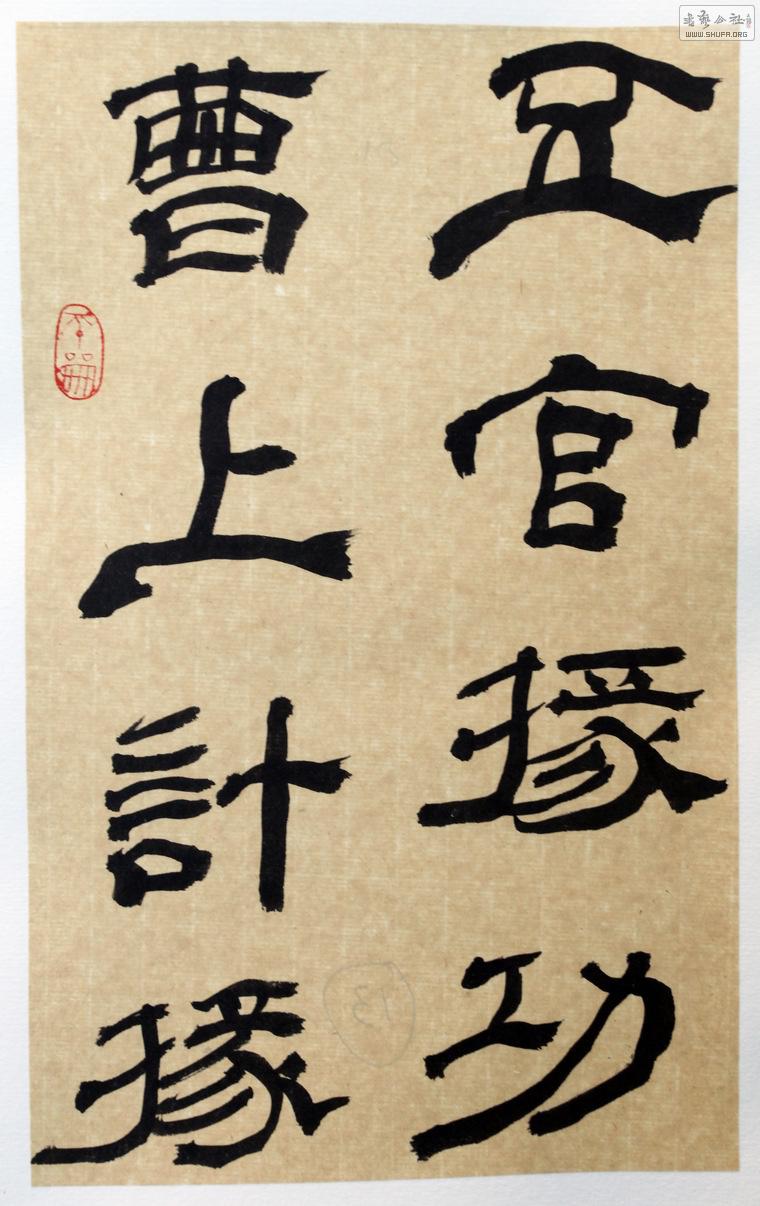 五官掾功
曹上計掾
書藝公社
WWW.SHUFA.ORG